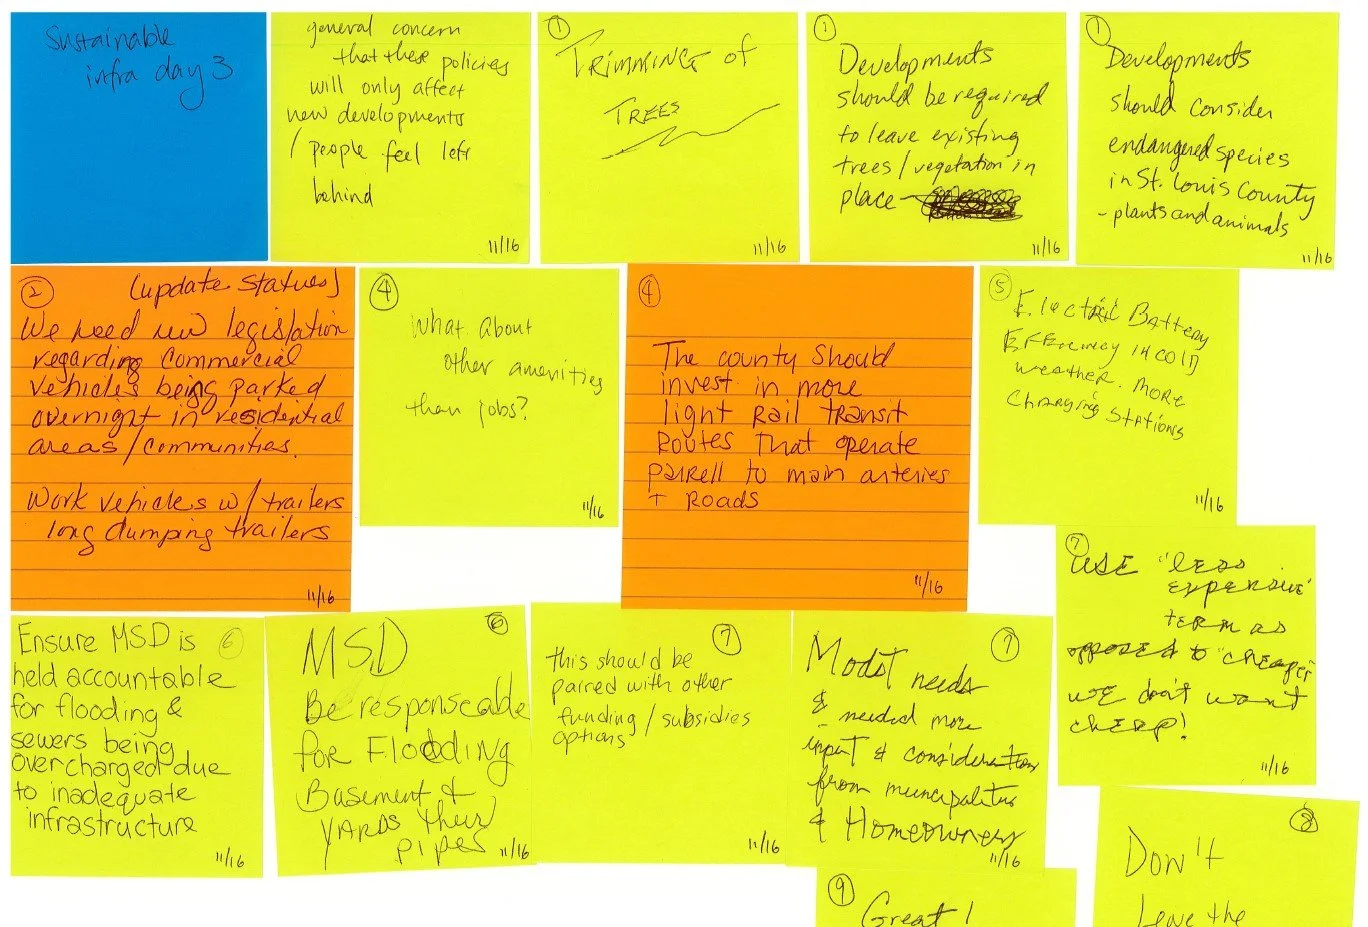 Sustainable
infra day 3
general concern
that these policies
will only affect
new developments
/ people feel left
behind
11/16
1
TRIMMING of
TREES
11/16
1
Developments
should be required
to leave existing
trees/vegetation in
place
11/16
1
Developments
should consider
endangered species
in St. Louis County
- plants and animals
11/16
2
(update Statues)
We need new legislation
regarding commercial
vehicles being parked
overnight in residential
areas/communities.
Work vehicles w/ trailers
long dumping trailers
11/16
4
What about
other amenities
than jobs?
11/16
4
The county Should
invest in more
light Rail transit
Routes That operate
parrell to main arteries
+ Roads
11/16
5
Electric Battery
Effeciency in cold
weather. More
Charging Stations
11/16
6
Ensure MSD is
held accountable
for flooding &
sewers being
overcharged due
to inadequate
infrastructure
11/16
6
MSD
Be responseable
for Flooding
Basement &
YARDS their
pipes
11/16
7
this should be
paired with other
funding/subsidies
options
11/16
7
Modot needs
& needed more
input & consideration
from municipalities
& Homeowners
11/16
7
USE "less
expensive"
term as
opposed to "cheaper"
we don't want
cheap!
11/16
9
Great!
8
Don't
leave the